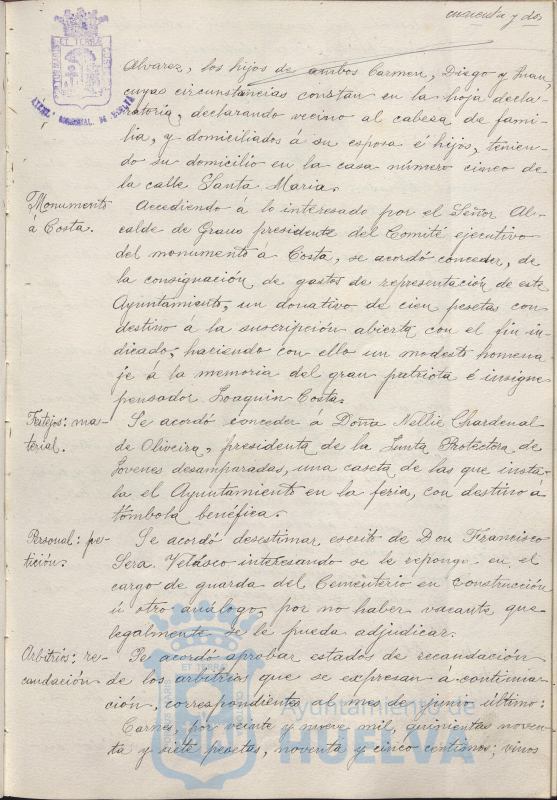 cincuenta y dos
Alvarez, los hijos de ambos Carmen, Diego y Juan,
cuyas circunstancias constan en la hoja decla-
ratoria, declarando vecino al cabeza de fami-
lia, y domiciliados á su esposa é hijos, tenien-
do su domicilio en la casa número cinco de
la calle Santa Maria.
Monumento
á Costa.
Accediendo á lo interesado por el Señor Al-
calde de Graus presidente del Comité ejecutivo
del monumento á Costa, se acordó conceder, de
la consignación de gastos de representación de este
Ayuntamiento, un donativo de cien pesetas con
destino a la suscripción abierta con el fin in-
dicado; haciendo con ello un modesto homena
je á la memoria del gran patriota é insigne
pensador Joaquin Costa.
Festejos: ma-
terial.
Se acordó conceder á Doña Nellie Chardenal
de Oliveira, presidenta de la Junta Protectora de
Jovenes desamparadas, una caseta de las que insta-
la el Ayuntamiento en la feria, con destino á
tómbola benéfica.
Personal: pe-
tición.
Se acordó desestimar escrito de Don Francisco
Sera Velasco interesando se le reponga en el
cargo de guarda del Cementerio en construcción
ú otro análogo, por no haber vacante que
legalmente se le pueda adjudicar.
Arbitrios: re-
caudación
Se acordó aprobar estados de recaudación
de los arbitrios que se expresan á continua-
ción, correspondientes al mes de junio último:
Carnes, por veinte y nueve mil, quinientas noven-
ta y siete pesetas, noventa y cinco centimos; vinos
Ayuntamiento de
HUELVA